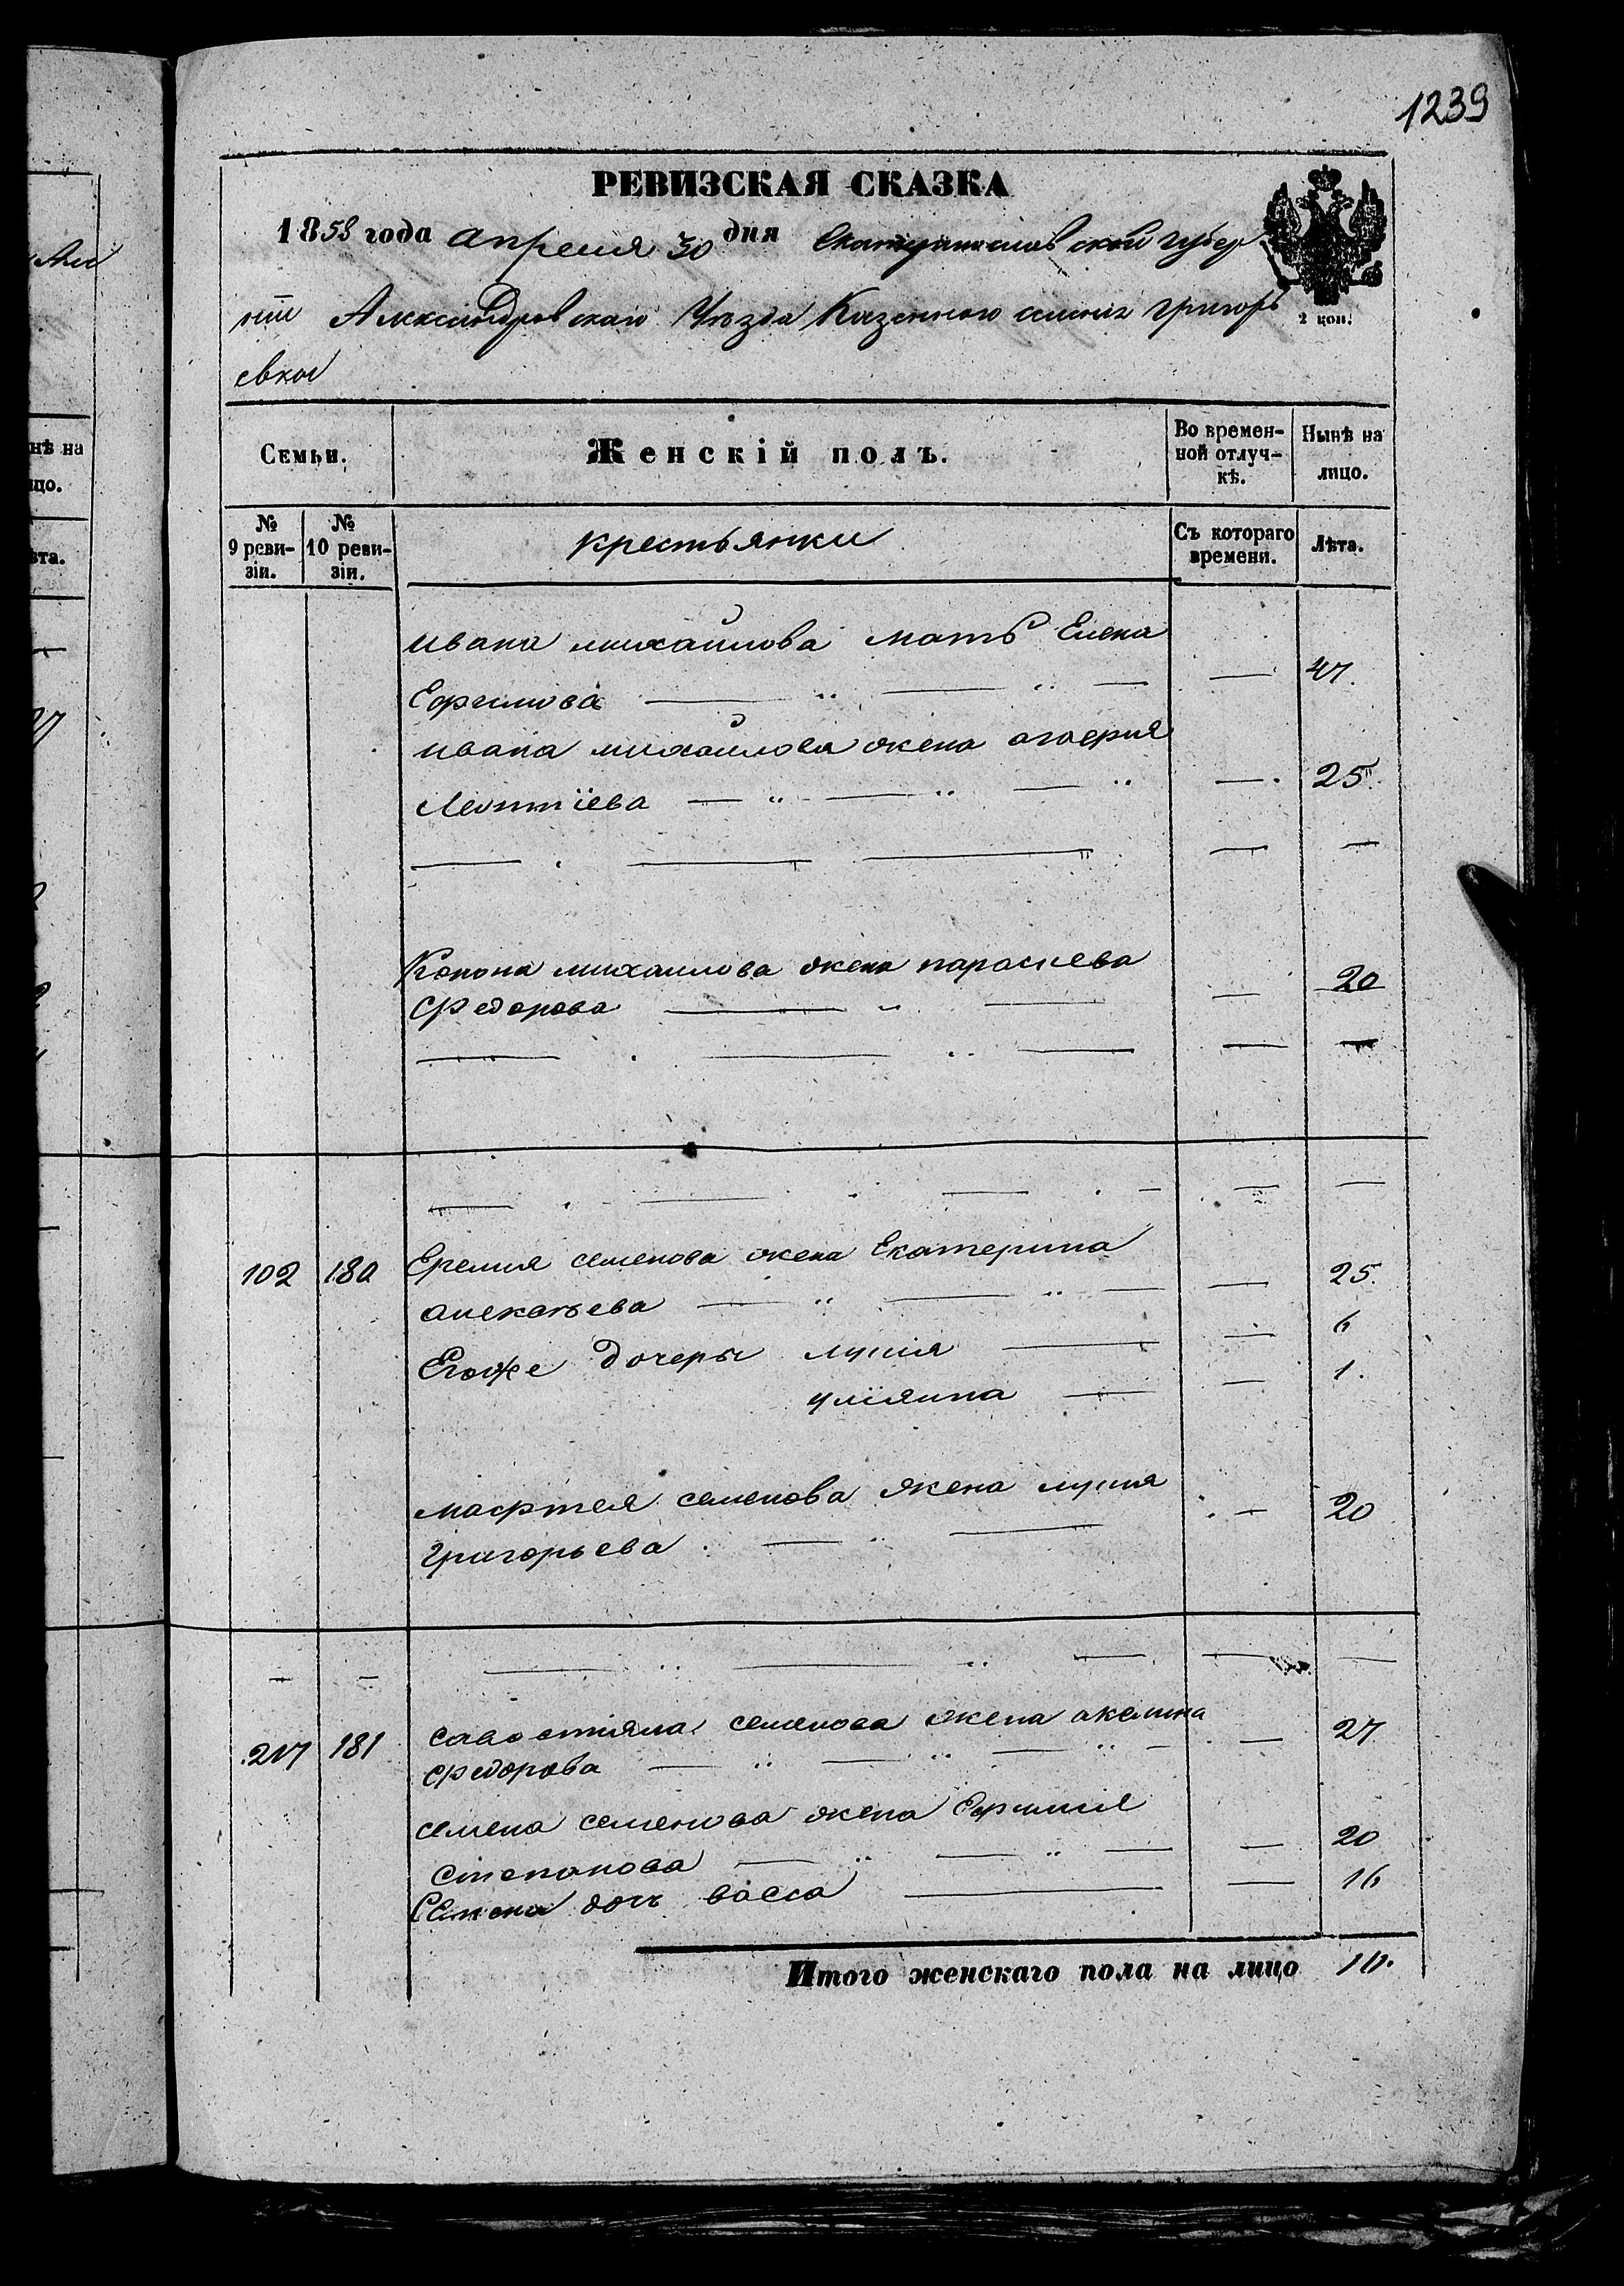 1239
РЕВИЗСКАЯ СКАЗКА
1858 года апреля 30 дня Екатеринославской губер
нии Александровскаго Уѣзда Казенного селения Григорь
евки
2 коп.
Семьи.
Женскій полъ.
Во времен-
ной отлуч-
кѣ.
Нынѣ на
лицо.
№
9 реви-
зіи.
№
10 реви-
зіи.
крестьянки
Съ котораго
времени.
Лѣта.
ивана михайлова мать Елена
Ефимова — — — 47.
ивана михайлова жена агаерия
Леонтіева — — — 25.
Конона михаилова жена параскева
Федорова — — 20
102 180 Еремия семенова жена Екатерина
алексеева — — — 25.
Егоже дочеры лукия — — 6
улiянна — — 1.
мафтея семенова жена лукия
григорьева — — — 20
217 181 савостияна семенова жена акелина
федорова — — — 27
семена семенова жена Ефимия
степанова — — — 20
Семена дочь васса — — 16
Итого женскаго пола на лицо 10.
нѣ на
цо.
ѣта.